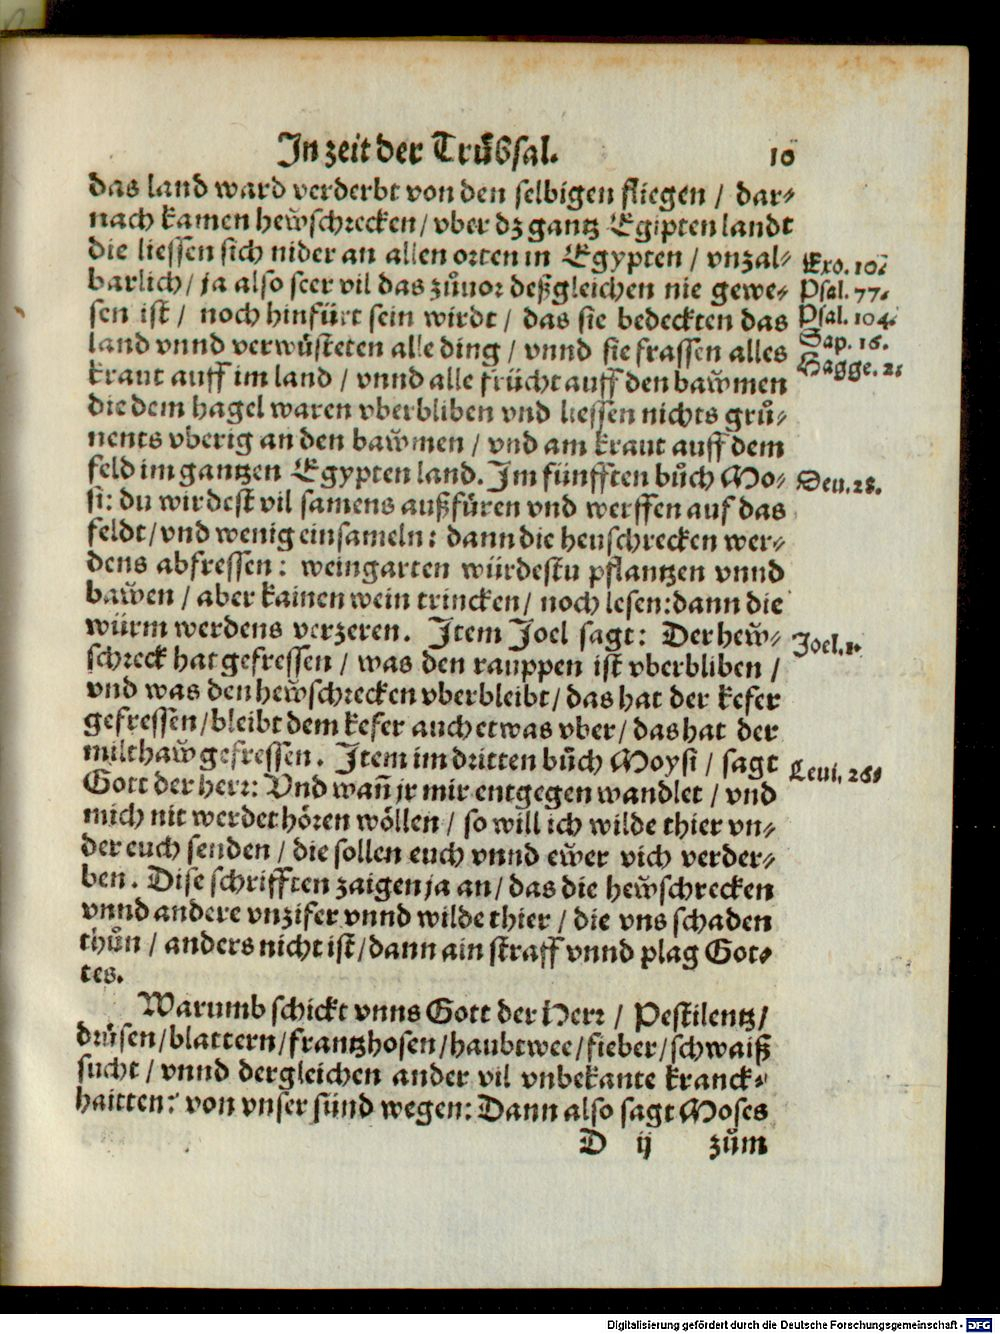 In zeit der Trůbsal. 10
das land ward verderbt von den selbigen fliegen / dar⸗
nach kamen hew̆schrecken / vber dz gantz Egipten landt
die liessen sich nider an allen orten in Egypten / vnzal⸗
Exo. 10.
barlich / ja also seer vil das zůuor deßgleichen nie gewe⸗
Psal. 77.
sen ist / noch hinfürt sein wirdt / das sie bedeckten das
Psal. 104.
land vnnd verwůsteten alle ding / vnnd sie frassen alles
Sap. 16.
kraut auff im land / vnnd alle frücht auff den baw̆men
Hagge. 2.
die dem hagel waren vberbliben vnd liessen nichts grů⸗
nents vberig an den baw̆men / vnd am kraut auff dem
feld im gantzen Egypten land. Im fünfften bůch Mo⸗
Deu. 28.
si: du wirdest vil samens außfüren vnd werffen auf das
feldt / vnd wenig einsameln: dann die heuschrecken wer⸗
dens abfressen: weingarten würdestu pflantzen vnnd
baw̆en / aber kainen wein trincken / noch lesen: dann die
würm werdens verzeren. Item Joel sagt: Der hew̆⸗
Joel. 1.
schreck hat gefressen / was den rauppen ist vberbliben /
vnd was den hew̆schrecken vberbleibt / das hat der kefer
gefressen / bleibt dem kefer auch etwas vber / das hat der
milthaw̆ gefressen. Item im dritten bůch Moysi / sagt
Leui. 26.
Gott der herr: Vnd wañ jr mir entgegen wandlet / vnd
mich nit werdet hören wöllen / so will ich wilde thier vn⸗
der euch senden / die sollen euch vnnd ew̆er vich verder⸗
ben. Dise schrifften zaigen ja an / das die hew̆schrecken
vnnd andere vnzifer vnnd wilde thier / die vns schaden
thůn / anders nicht ist / dann ain straff vnnd plag Got⸗
tes.
Warumb schickt vnns Gott der Herr / Pestilentz /
drůsen / blattern / frantzhosen / haubtwee / fieber / schwaiß
sucht / vnnd dergleichen ander vil vnbekante kranck⸗
haitten: von vnser sünd wegen: Dann also sagt Moses
D ij zům
Digitalisierung gefördert durch die Deutsche Forschungsgemeinschaft - DFG